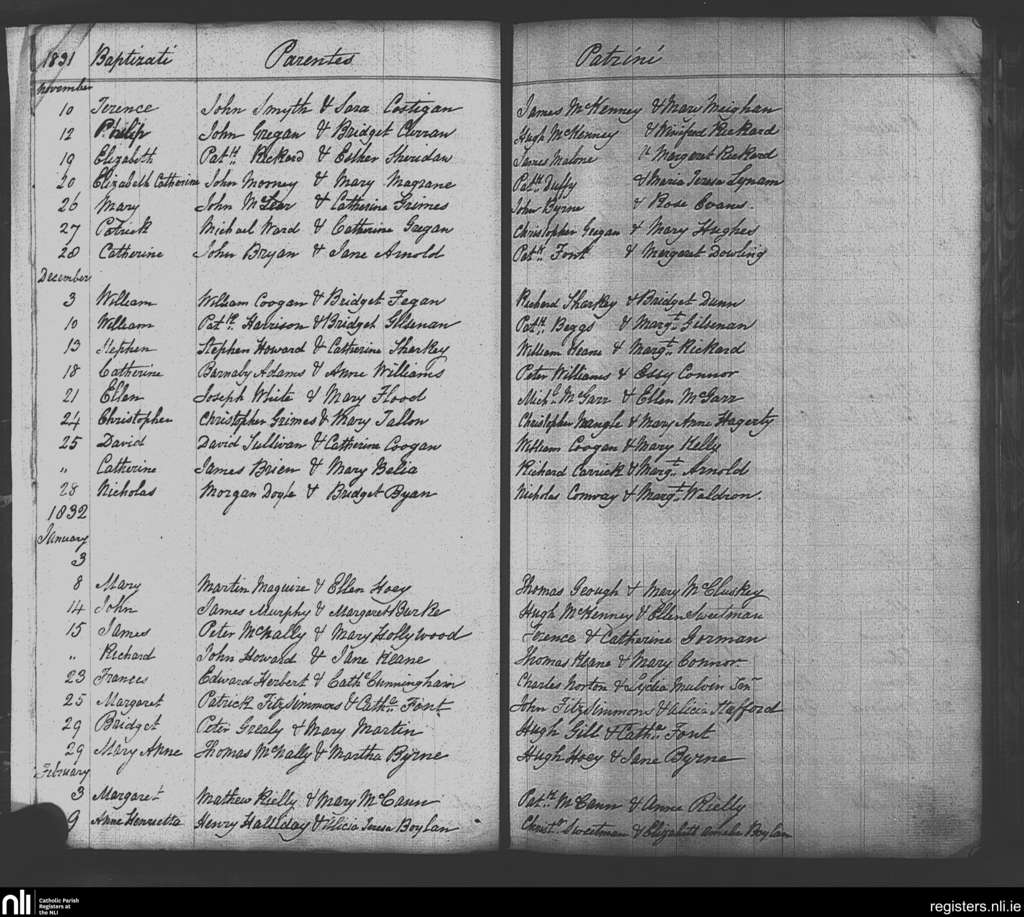 1831 Baptizati Parentes Patrini
November
10 Terence John Smyth & Sara Costigan James McKenney & Mary Meighan
12 Philip John Gregan & Bridget Curran Hugh McKenney & Winifred Rickard
19 Elizabeth Patk. Rickard & Esther Sheridan James Malone & Margaret Rickard
20 Elizabeth Catherine John Mooney & Mary Magrane Patk. Duffy & Maria Teresa Lynam
26 Mary John & Catherine Grimes John Byrne & Rose Evans.
27 Patrick Michael Ward & Catherine Geegan Christopher Geegan & Mary Hughes
28 Catherine John Bryan & Jane Arnold Patk. Font & Margaret Dowling
December
3 William William Coogan & Bridget Fegan Richard Sharkey & Bridget Dunn
10 William Patk. Harrison & Bridget Gilsenan Patk. Beggs & Margt. Gilsenan
13 Stephen Stephen Howard & Catherine Sharkey William Heane & Margt. Rickard
18 Catherine Barnaby Adams & Anne Williams Peter Williams & Essy Connor
21 Ellen Joseph White & Mary Flood Michl. McGarr & Ellen McGarr
24 Christopher Christopher Grimes & Mary Tallon Christopher Mangle & Mary Anne Hagerty
25 David David Sullivan & Catherine Coogan William Coogan & Mary Kelly
" Catherine James Brien & Mary Belia Richard Carrick & Margt. Arnold
28 Nicholas Morgan Doyle & Bridget Byan Nicholas Conway & Margt. Waldron.
1832
January
3
8 Mary Martin Maguire & Ellen Hoey Thomas Geough & Mary McCluskey
14 John James Murphy & Margaret Burke Hugh McKenney & Ellen Sweetman
15 James Peter McNally & Mary Hollywood Terence & Catherine Gorman
" Richard John Howard & Jane Keane Thomas Keane & Mary Connor
23 Frances Edward Herbert & Cathe. Cunningham Charles Norton & Lydia Mulvin Senr
25 Margaret Patrick FitzSimmons & Catha. Font John FitzSimmons & Alicia Stafford
29 Bridget Peter Grealy & Mary Martin Hugh Gill & Catha. Font
29 Mary Anne Thomas McNally & Martha Byrne Hugh Hoey & Jane Byrne
February
3 Margaret Mathew Rielly & Mary McCann Patk. McCann & Anne Rielly
9 Anne Henrietta Henry Halliday & Alicia Teresa Boylan Christr. Sweetman & Elizabeth Amelia Boylan
nli Catholic Parish
Registers at
the NLI
registers.nli.ie